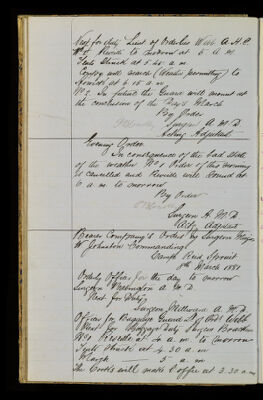 Next for duty Lieut of Orderlies Webb A.H.C.
No 1 Reveille to morrow at 5 A.M.
Tents Struck at 5.45 a.m
Company will march (Weather permitting) to
at 6.15 a.m
No 2. In future the Guard will mount at
the conclusion of the Days March
By Order
Surgeon A.M.D
Acting Adjutant
Evening Order
In consequence of the bad state
of the weather No 1 Order of this morning
is cancelled and Reveille will Sound at
6 a.m. to morrow
By Order
Surgeon A.M.D
Actg Adjutant
Bearer Company's Orders by Surgeon Major
W Johnston Commanding
Camp Reid Spruit
8th March 1881
Orderly Officer for the day to morrow
Surgeon A.M.D
Next for Duty
Surgeon A.M.D
Officer for Baggage Guard Lt of Ords Webb
Next for Baggage Duty Surgeon
No 1 Reveille at 4 a.m. to morrow
Tents struck at 4.30 a.m
March 5 a.m.
The Cooks will make Coffee at 3.30 a.m